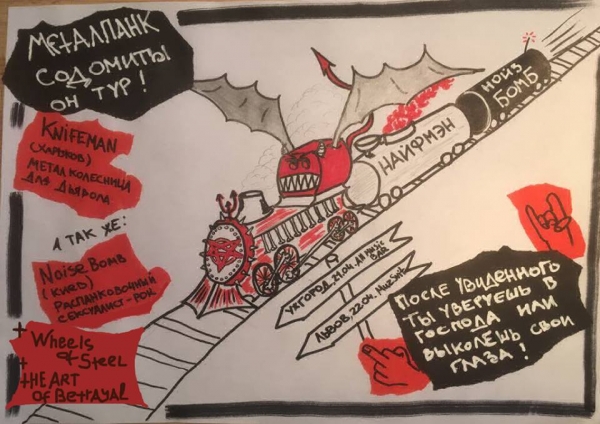 МЕТАЛПАНК
СОДОМИТЫ
ОН ТУР!
KNIFEMAN
(ХАРЬКОВ)
МЕТАЛ КОЛЕСНИЦА
ДЛЯ ДЬЯВОЛА
А ТАК ЖЕ:
NOISE BOMB
(КИЕВ)
РАСПАНКОВОЧНЫЙ
СЕКСУАЛИСТ-РОК
+ Wheels
of Steel
+ tHE ARt
of Betrayal
НАЙФМЭН
НОЙЗ
БОМБ
УЖГОРОД, 21.04,
BAR
ЛЬВОВ, 22.04,
ПОСЛЕ УВИДЕННОГО
ТЫ УВЕРУЕШЬ В
ГОСПОДА ИЛИ
ВЫКОЛЕШЬ СВОИ
ГЛАЗА!